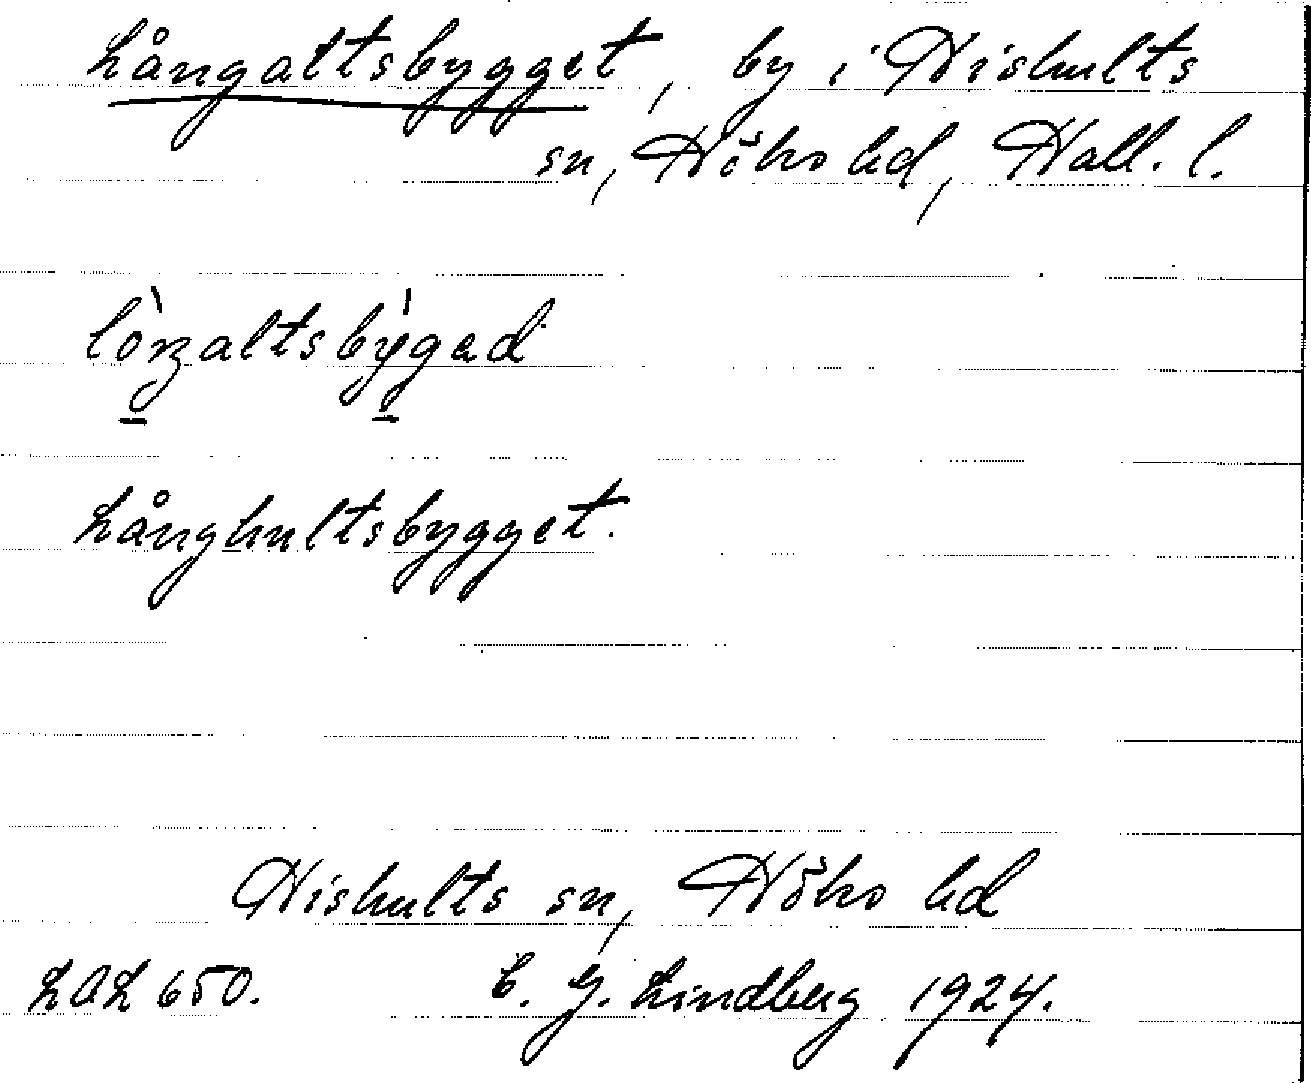 Långaltsbygget, by i Hishults
sn, Höks hd, Hall. l.
lòŋaltsbỳgəd
Långhultsbygget.
Hishults sn, Höks hd
LAL 650. C. G. Lindberg 1924.